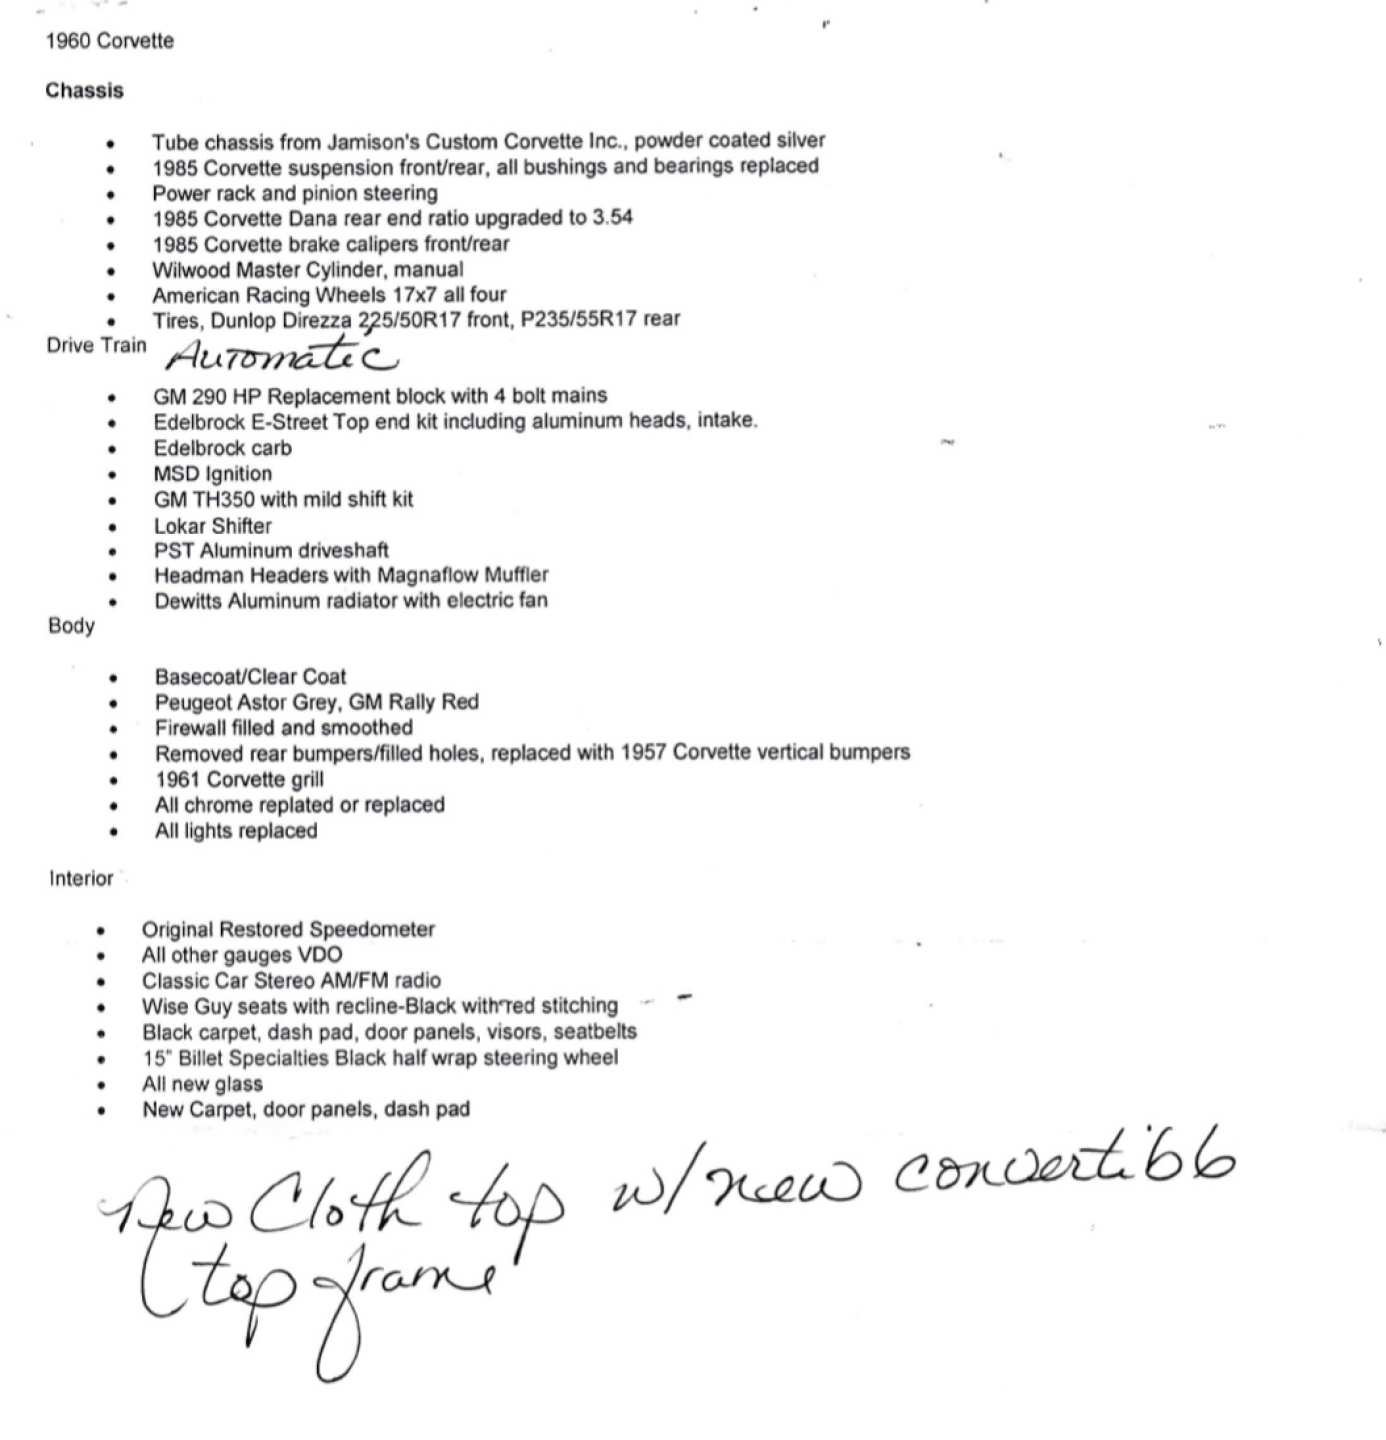 1960 Corvette
Chassis
• Tube chassis from Jamison's Custom Corvette Inc., powder coated silver
• 1985 Corvette suspension front/rear, all bushings and bearings replaced
• Power rack and pinion steering
• 1985 Corvette Dana rear end ratio upgraded to 3.54
• 1985 Corvette brake calipers front/rear
• Wilwood Master Cylinder, manual
• American Racing Wheels 17x7 all four
• Tires, Dunlop Direzza 225/50R17 front, P235/55R17 rear
Drive Train Automatic
• GM 290 HP Replacement block with 4 bolt mains
• Edelbrock E-Street Top end kit including aluminum heads, intake.
• Edelbrock carb
• MSD Ignition
• GM TH350 with mild shift kit
• Lokar Shifter
• PST Aluminum driveshaft
• Headman Headers with Magnaflow Muffler
• Dewitts Aluminum radiator with electric fan
Body
• Basecoat/Clear Coat
• Peugeot Astor Grey, GM Rally Red
• Firewall filled and smoothed
• Removed rear bumpers/filled holes, replaced with 1957 Corvette vertical bumpers
• 1961 Corvette grill
• All chrome replated or replaced
• All lights replaced
Interior
• Original Restored Speedometer
• All other gauges VDO
• Classic Car Stereo AM/FM radio
• Wise Guy seats with recline-Black with red stitching
• Black carpet, dash pad, door panels, visors, seatbelts
• 15" Billet Specialties Black half wrap steering wheel
• All new glass
• New Carpet, door panels, dash pad
New Cloth top w/new convertible
top frame